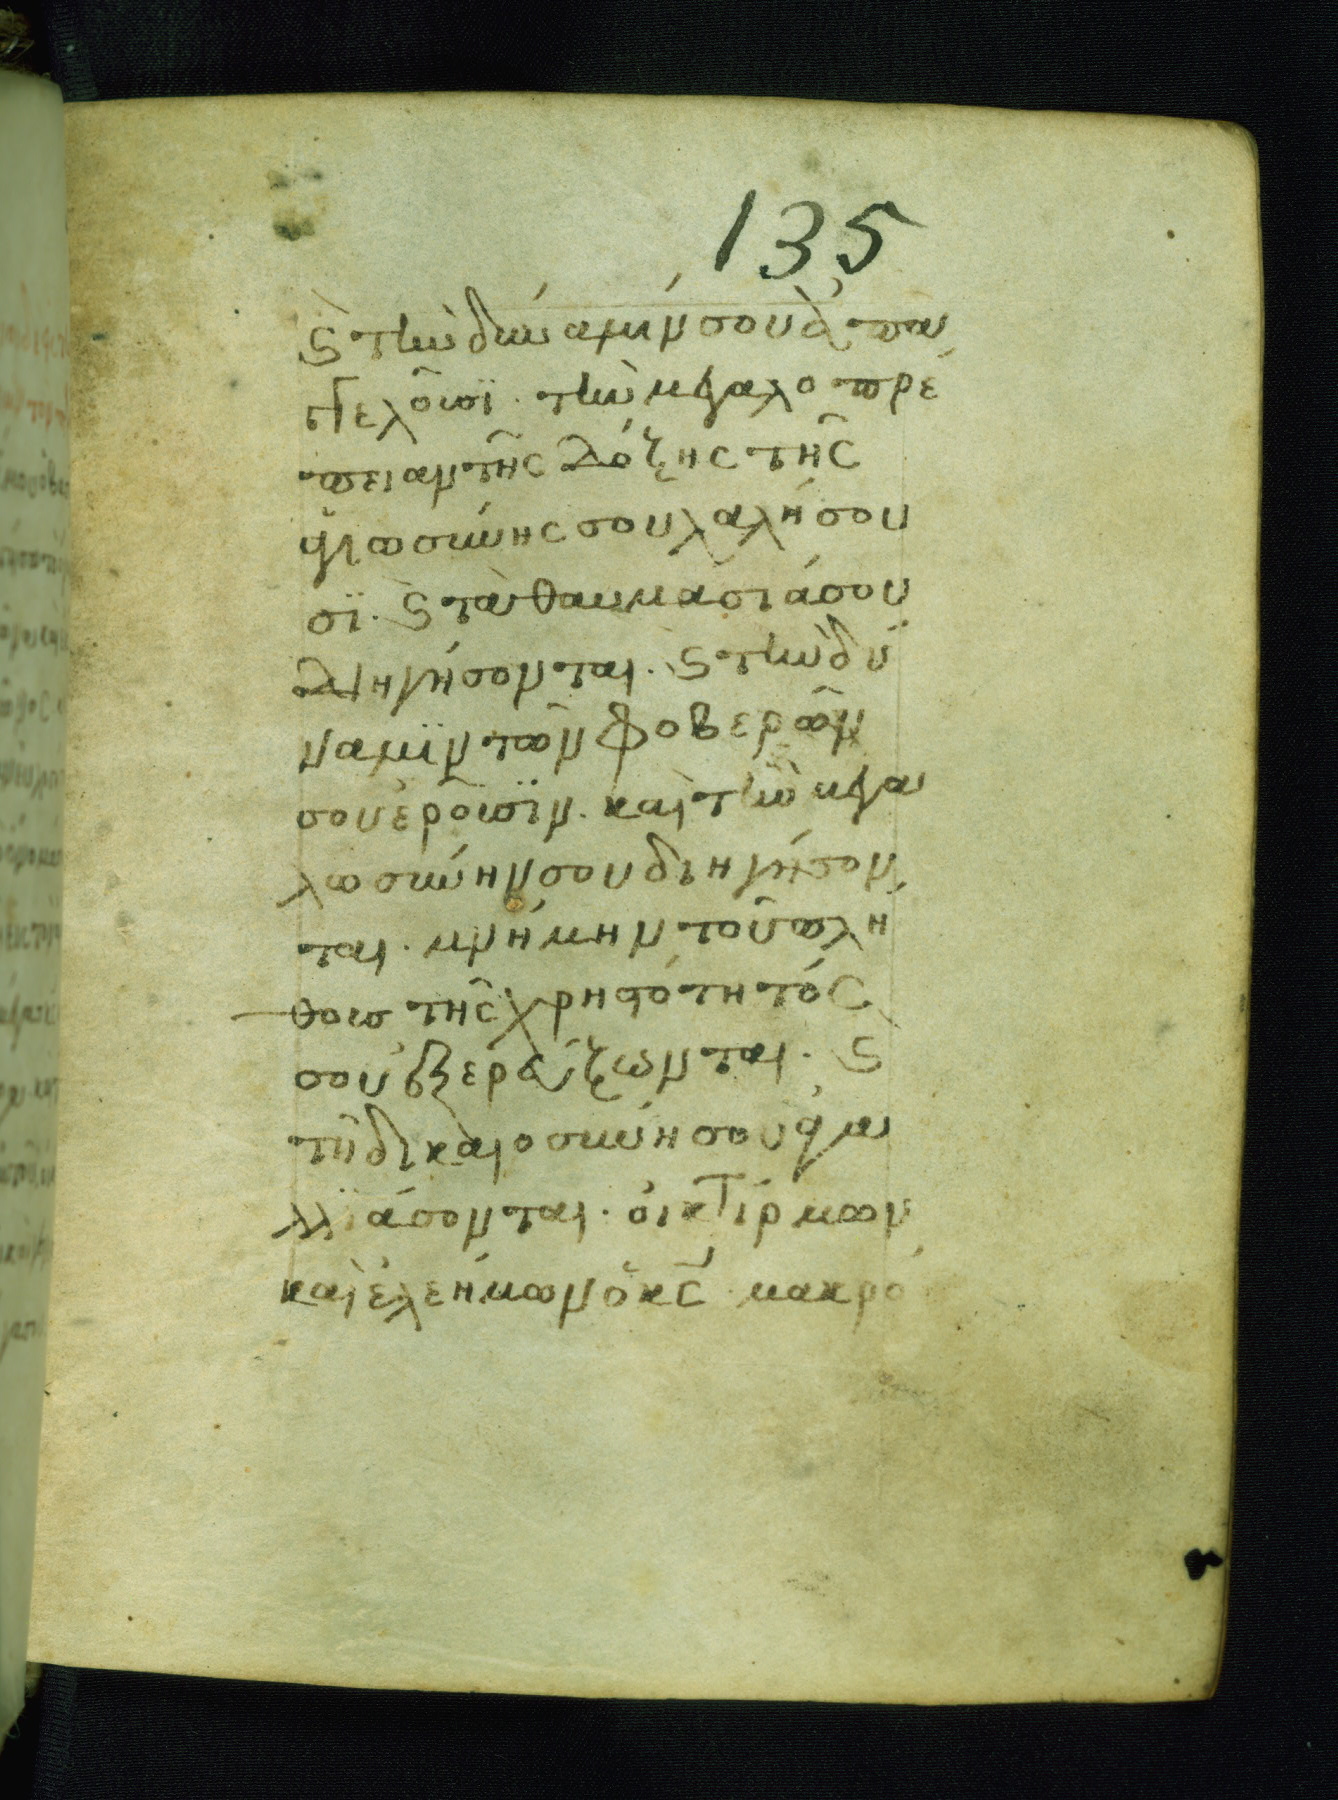 135
ϛ τὴν δύναμήν σου ἀπαγ
γελοῦσϊ· τὴν μεγαλοπρέ
πειαν τῆς δόξης τῆς
ἁγιωσύνης σου λαλήσου
σϊ· ϛ τὰ θαυμάσιά σου
διηγήσονται· ϛ τὴν δύ
ναμϊν τῶν φοβερῶν
σου ἐροῦσϊν· καὶ τὴν μεγα
λωσύνην σου διηγήσον
ται· μνήμην τοῦ πλή
θους τῆς χρηστότητός
σου ἐξερεύξωνται· ϛ
τῇ δικαιοσύνη σου ἀγα
λλϊάσονται· οἰκτίρμων
καὶ ἐλεήμων ὁ κ̅ς̅· μακρό